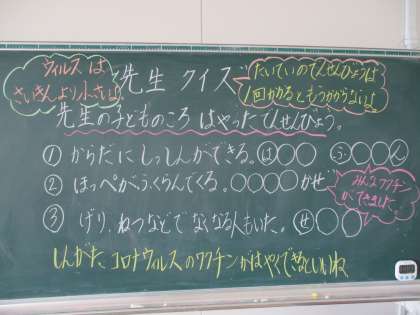 ウィルスは
さいきんより小さいよ
先生 クイズ
たいていのでんせんびょうは
1回かかるともうかからないよ
先生の子どものころ はやったでんせんびょう。
① からだにしっしんができる。は○○ ふ○○ん
② ほっぺがふくらんでくる。○○○○かぜ
③ げり、ねつなどでなくなる人もいた。せ○○○
みんなワクチン
ができました
しんがたコロナウィルスのワクチンがはやくできるといいね